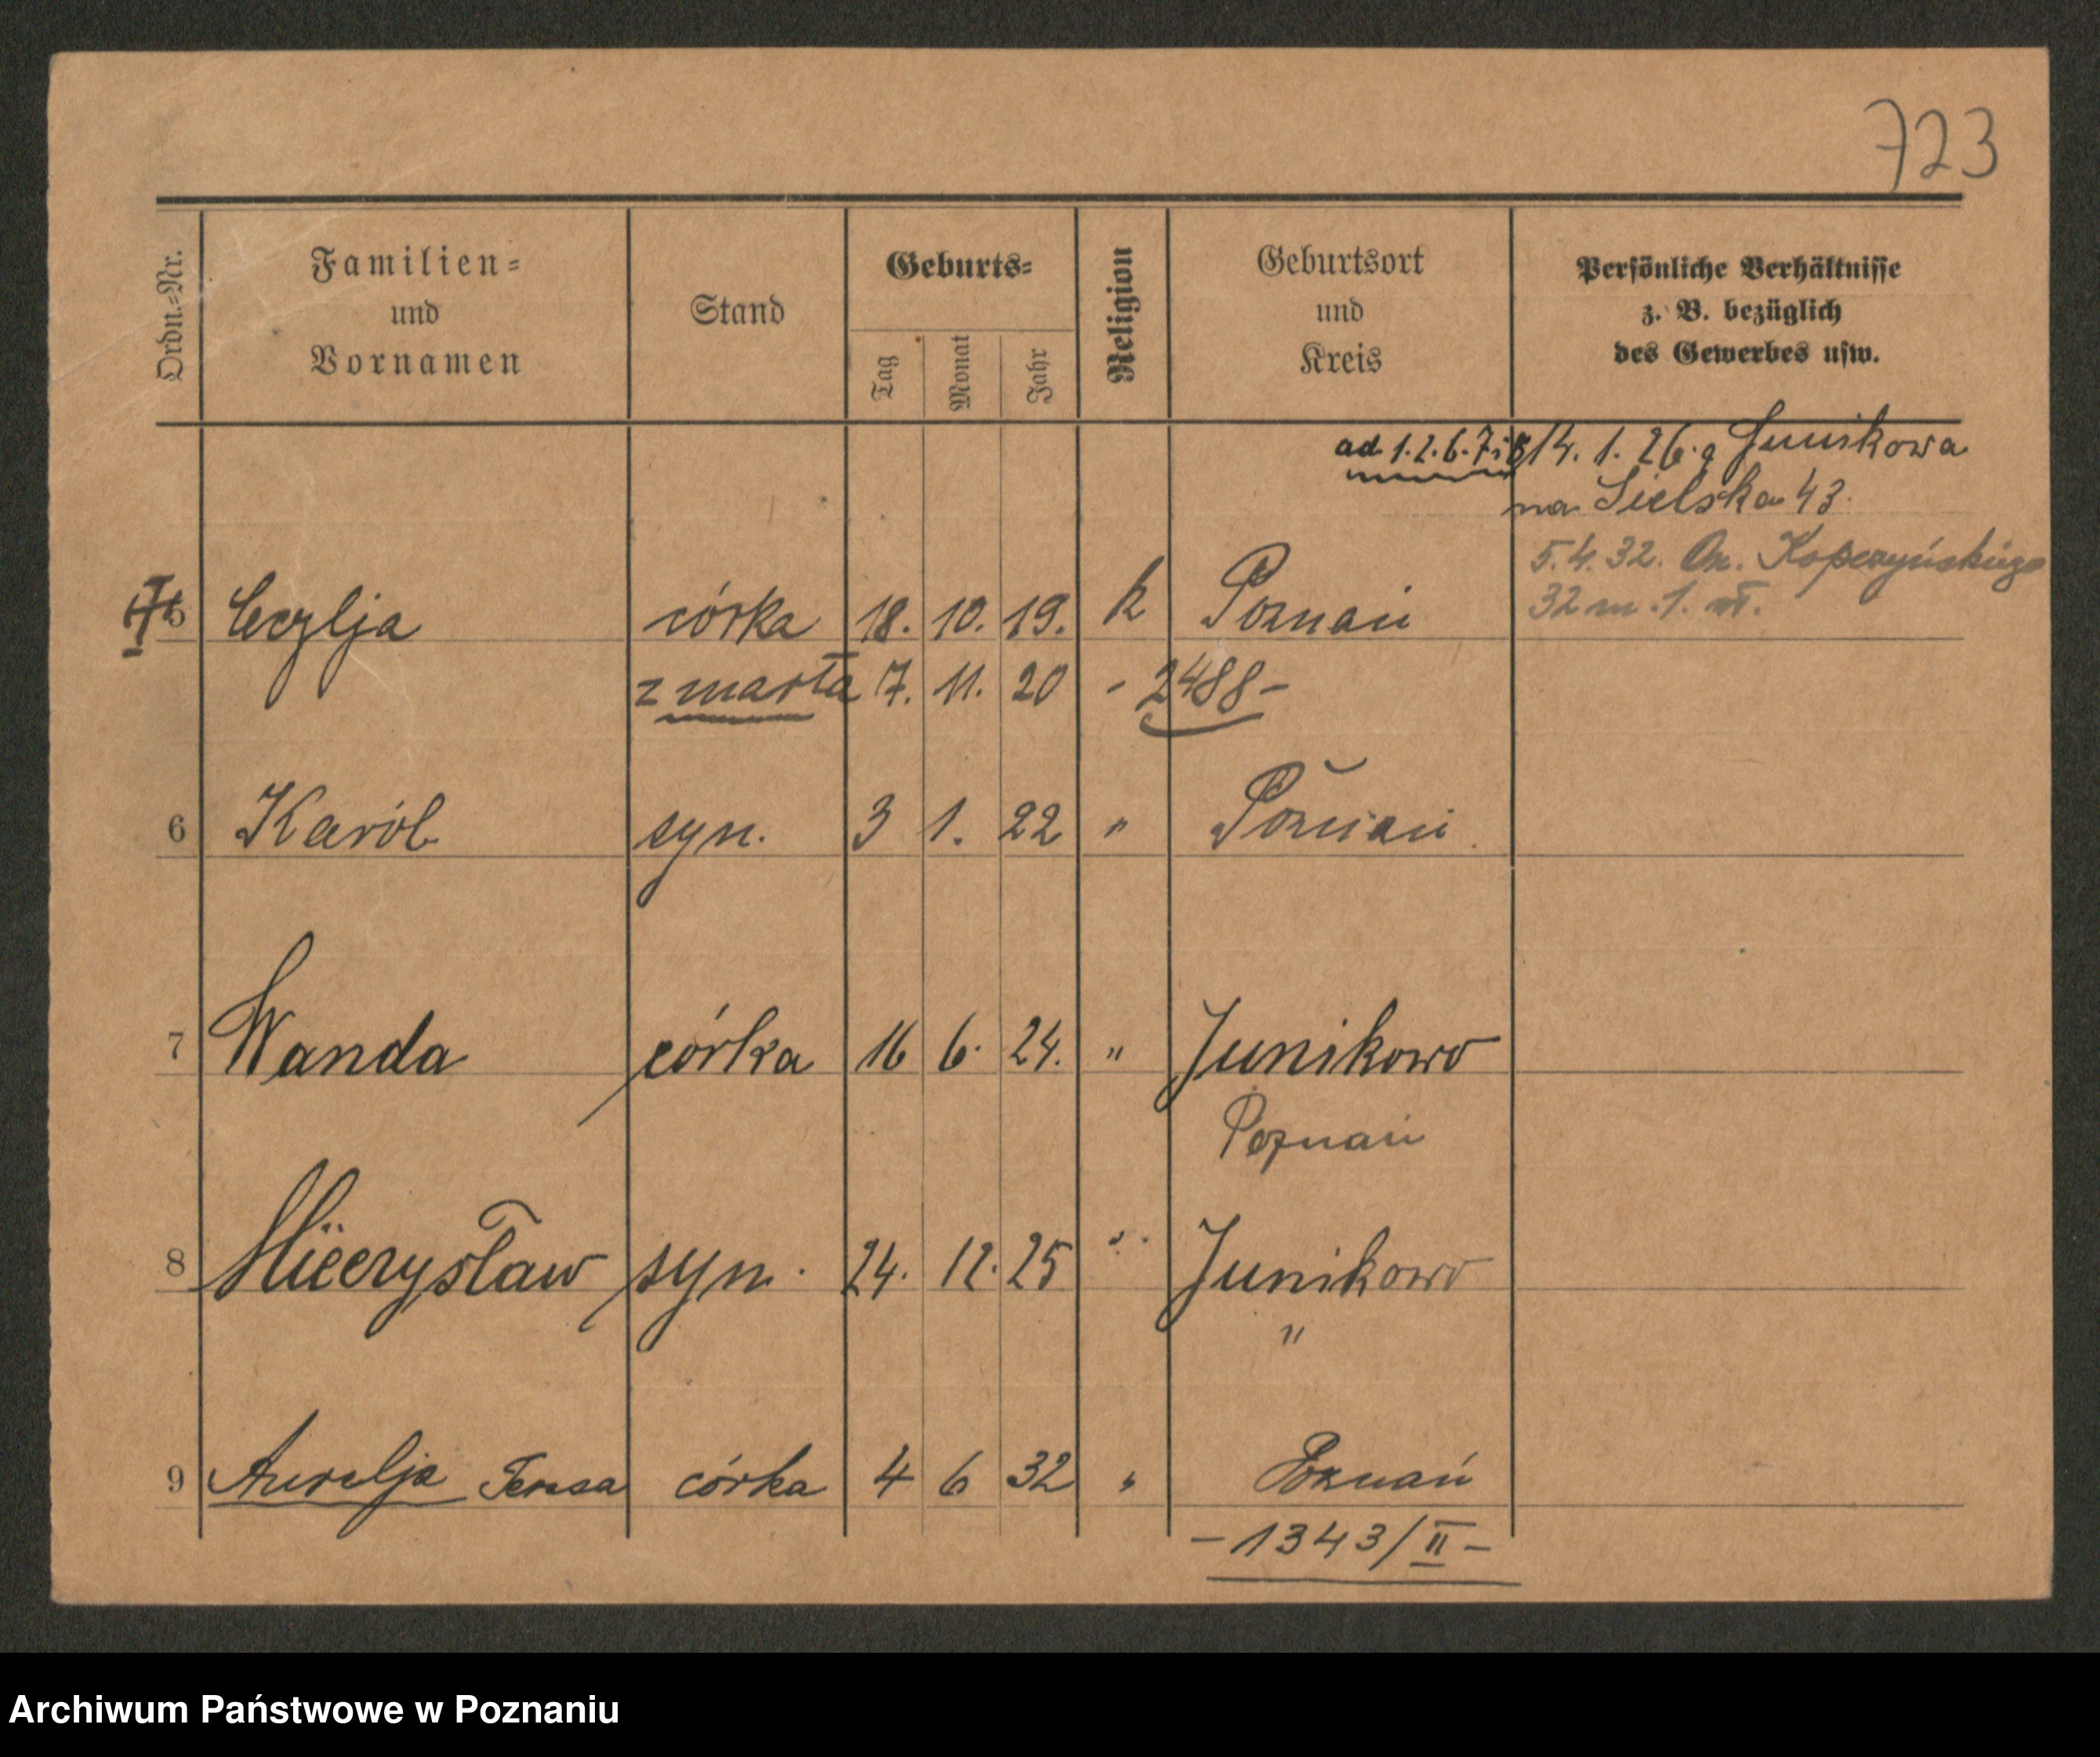 723
Ordn.=Nr. Familien= und Vornamen Stand Geburts= Tag Monat Jahr Religion Geburtsort und Kreis Persönliche Verhältnisse z. B. bezüglich des Gewerbes usw.
ad. 1. 2. 6. 7 i 8 14. 1. 26. z Junikowa
na Sielska 43.
5. 4. 32. On. Kopczyńskiego
32 m. 1. wł.
5 Cezylja córka 18. 10. 19. k Poznań
zmarła 7. 11. 20 - 2488 -
6 Karól syn. 3 1. 22 " Poznań
7 Wanda córka 16 6. 24. " Junikowo
Poznań
8 Mieczysław syn. 24. 12. 25 " Junikowo
"
9 Aurelja Teresa córka 4 6 32 " Poznań
- 1343/II -
Archiwum Państwowe w Poznaniu